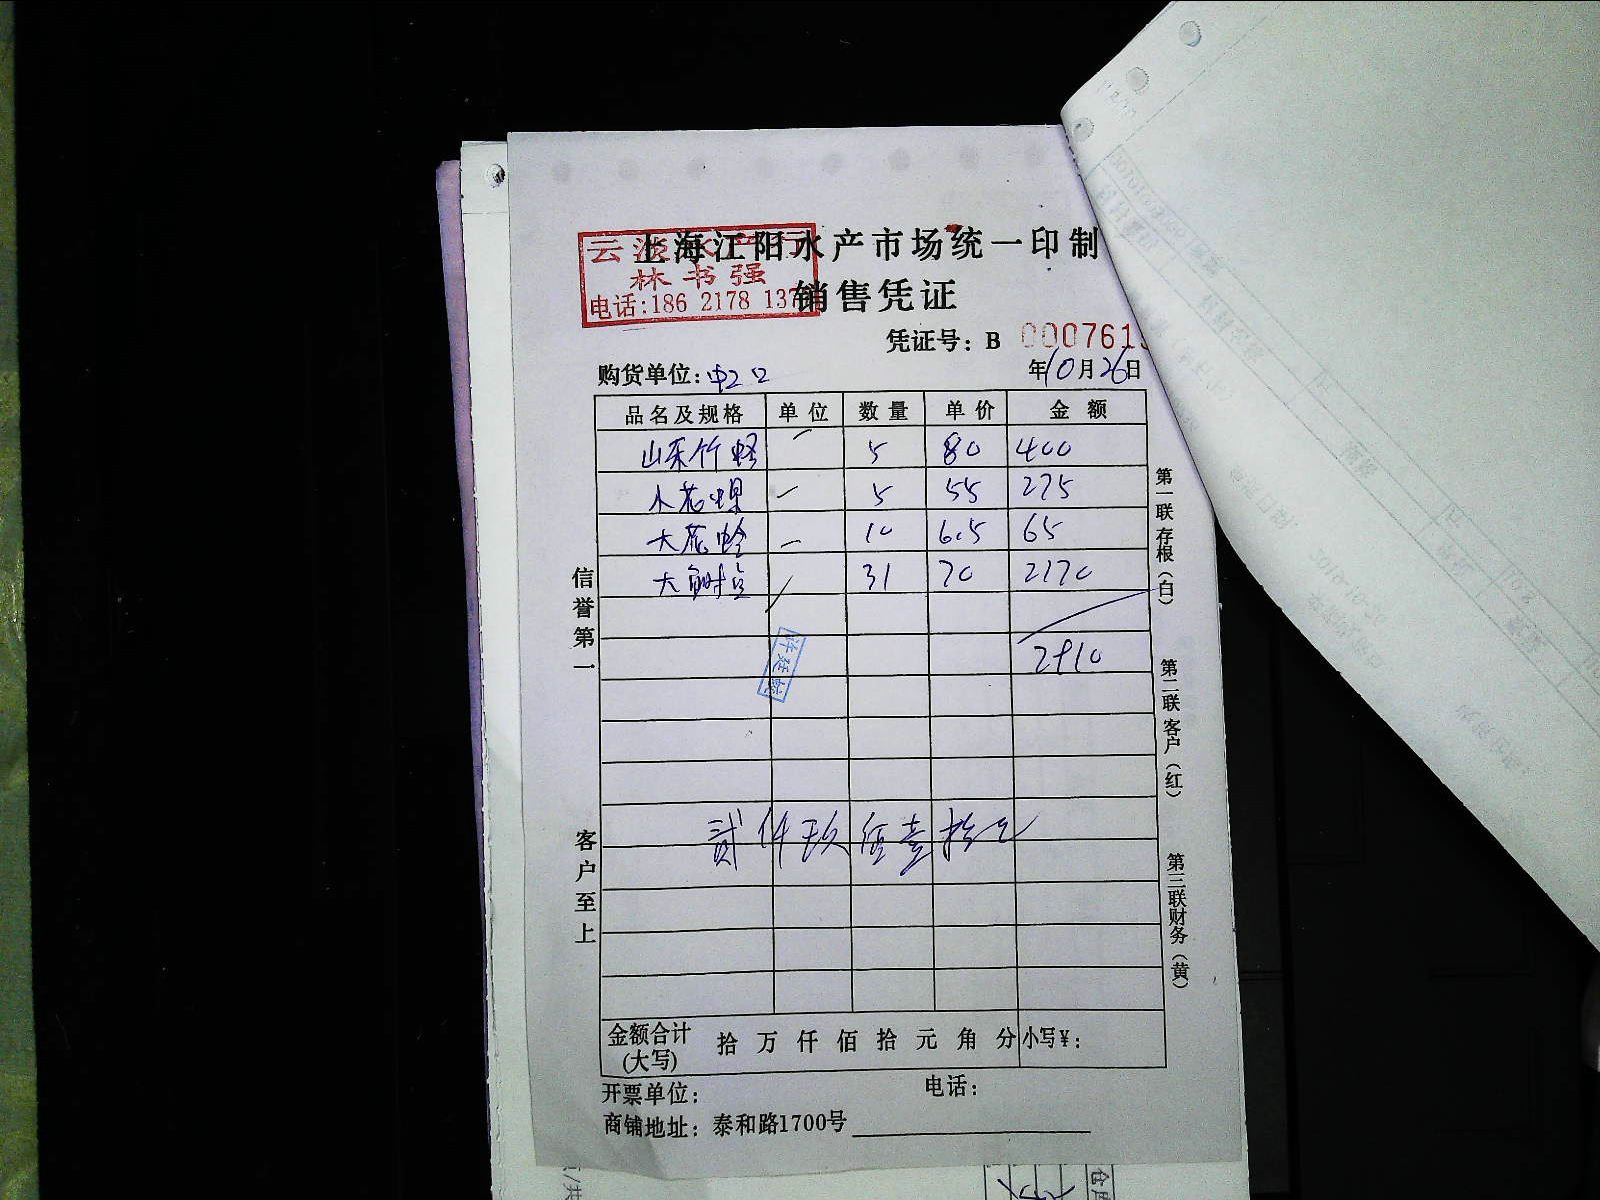 上海江阳水产市场统一印制
云淡水产行
林书强
电话:186 2178 137
销售凭证
凭证号: B 000761
购货单位: 中2口
年10月26日
品名及规格 单位 数量 单价 金额
山东竹蛏 5 80 400
小花螺 5 55 275
大花蛤 10 6.5 65
大 31 70 2170
2910
贰仟玖佰壹拾元
信誉第一
客户至上
第一联存根(白)
第二联客户(红)
第三联财务(黄)
金额合计
(大写) 拾 万 仟 佰 拾 元 角 分 小写¥:
开票单位: 电话:
商铺地址: 泰和路1700号